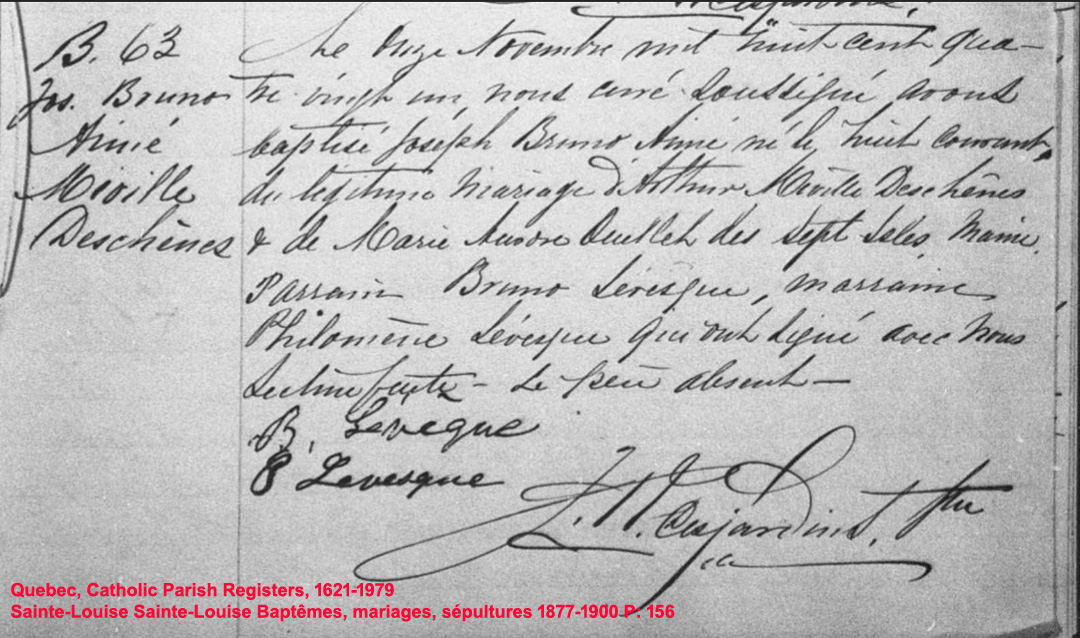 B. 63
Jos. Bruno
Aimé
Miville
Deschênes
Le Onze Novembre mil huit cent qua-
tre vingt un, nous curé soussigné avons
baptisé Joseph Bruno Aimé né le huit courant,
du légitime mariage d'Arthur Miville Deschênes
& de Marie Aurore Ouellet des Sept Isles
Parrain Bruno Lévesque, marraine
Philomène Lévesque qui ont signé avec nous
Lecture faite - Le père absent -
B. Levêque
P Levesque
Desjardins, Ptre
Quebec, Catholic Parish Registers, 1621-1979
Sainte-Louise Sainte-Louise Baptêmes, mariages, sépultures 1877-1900 P. 156